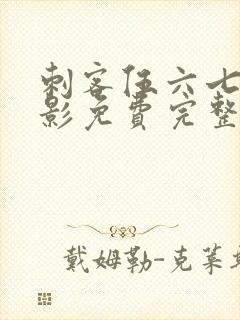 刺客伍六七
影免费完整
戴姆勒-克莱斯